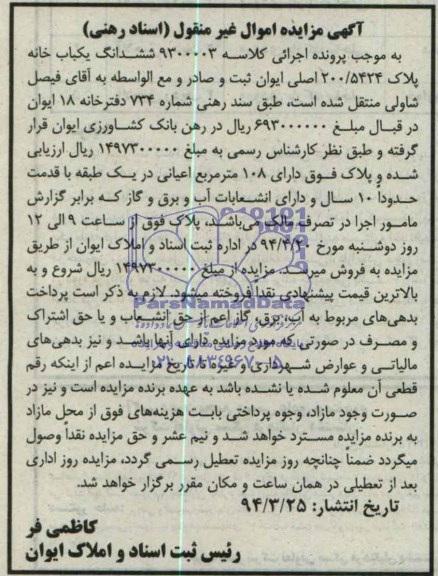 آگهی مزایده اموال غیر منقول (اسناد رهنی)
به موجب پرونده اجرائی کلاسه ۹۳۰۰۰۰۳ ششدانگ یکباب خانه
پلاک ۲۰۰/۵۴۲۴ اصلی ایوان ثبت و صادر و مع الواسطه به آقای فیصل
شاولی منتقل شده است، طبق سند رهنی شماره ۷۳۴ دفترخانه ۱۸ ایوان
در قبال مبلغ ۶۹۳۰۰۰۰۰۰ ریال در رهن بانک کشاورزی ایوان قرار
گرفته و طبق نظر کارشناس رسمی به مبلغ ۱۴۹۷۳۰۰۰۰۰ ریال ارزیابی
شده و پلاک فوق دارای ۱۰۸ مترمربع اعیانی در یک طبقه با قدمت
حدوداً ۱۰ سال و دارای انشعابات آب و برق و گاز که برابر گزارش
مامور اجرا در تصرف مالک می‌باشد، پلاک فوق از ساعت ۹ الی ۱۲
روز دوشنبه مورخ ۹۴/۴/۲۰ در اداره ثبت اسناد و املاک ایوان از طریق
مزایده به فروش میرسد. مزایده از مبلغ ۱۴۹۷۳۰۰۰۰۰ ریال شروع و به
بالاترین قیمت پیشنهادی نقداً فروخته میشود. لازم به ذکر است پرداخت
ParsNamadData
بدهی‌های مربوط به آب، برق، گاز اعم از حق انشعاب و یا حق اشتراک
و مصرف در صورتی که مورد مزایده دارای آنها باشد و نیز بدهی‌های
۰۲۱-۸۸۳۴۹۶۷۰-۵
مالیاتی و عوارض شهرداری و غیره تا تاریخ مزایده اعم از اینکه رقم
قطعی آن معلوم شده یا نشده باشد به عهده برنده مزایده است و نیز در
صورت وجود مازاد، وجوه پرداختی بابت هزینه‌های فوق از محل مازاد
به برنده مزایده مسترد خواهد شد و نیم عشر و حق مزایده نقداً وصول
میگردد ضمناً چنانچه روز مزایده تعطیل رسمی گردد، مزایده روز اداری
بعد از تعطیلی در همان ساعت و مکان مقرر برگزار خواهد شد.
تاریخ انتشار: ۹۴/۳/۲۵
کاظمی فر
رئیس ثبت اسناد و املاک ایوان